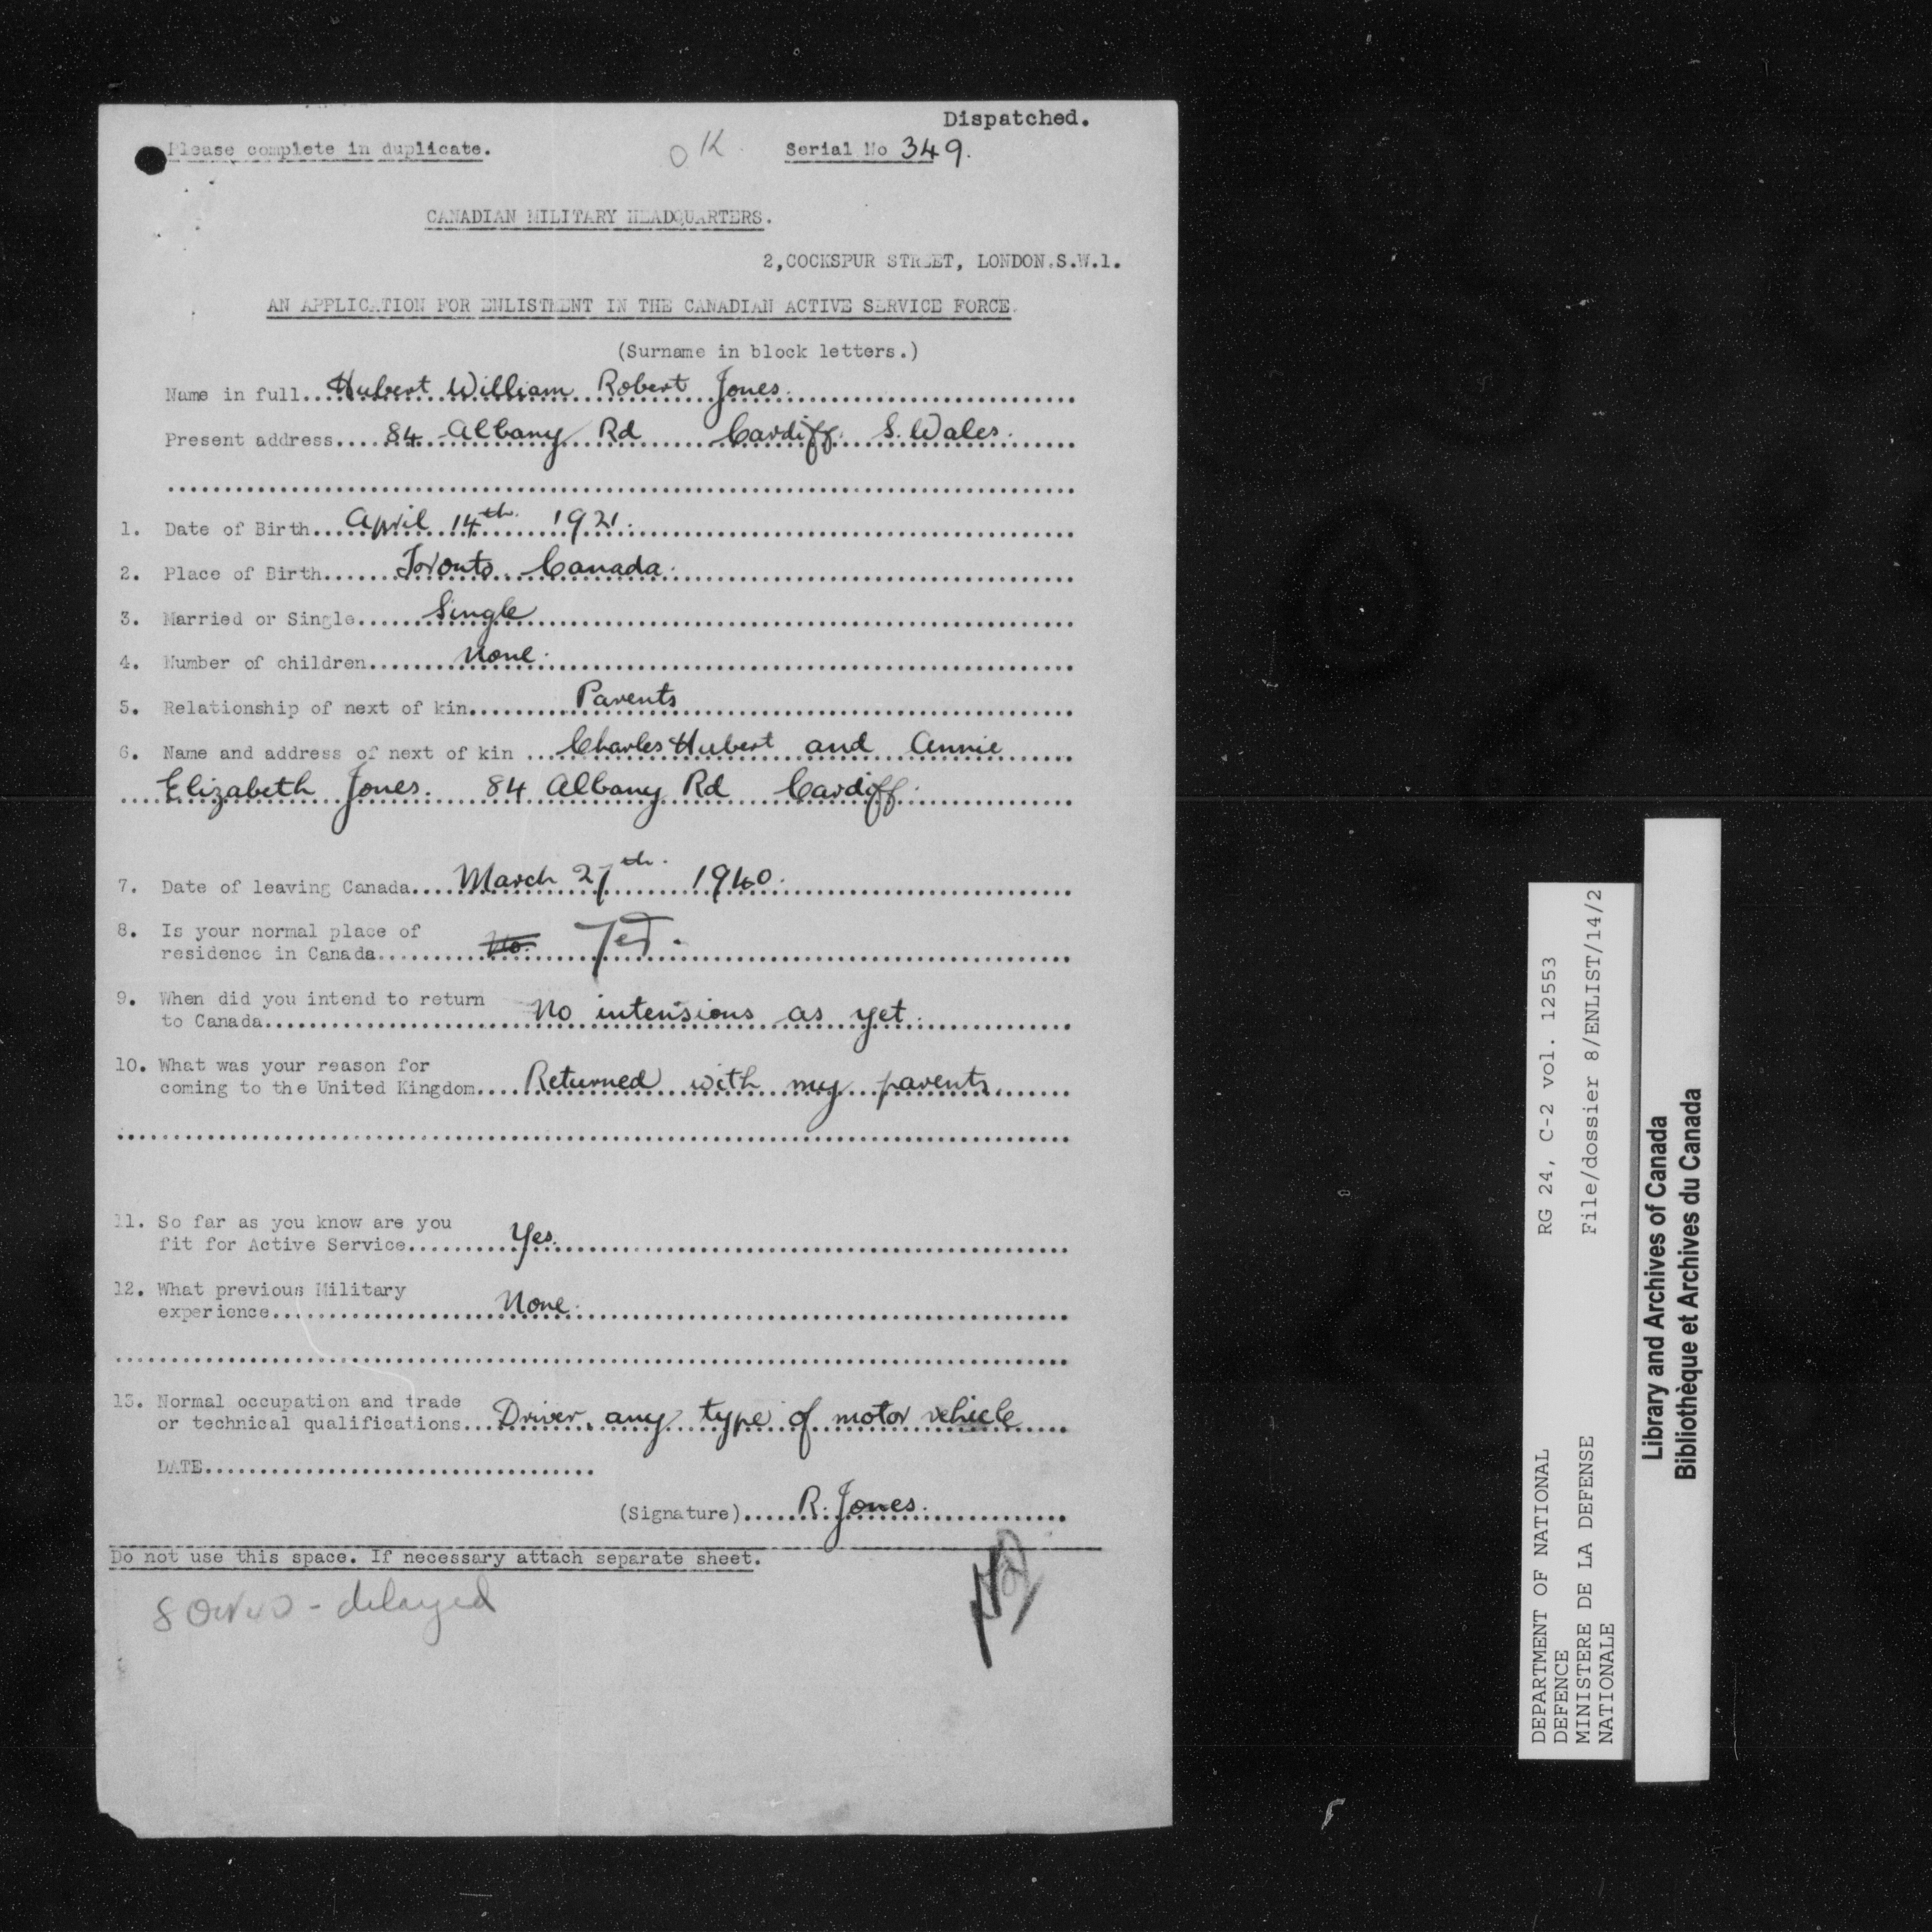 Dispatched.
Please complete in duplicate.
OK
Serial No 349.
CANADIAN MILITARY HEADQUARTERS.
2,COCKSPUR STREET, LONDON.S.W.1.
AN APPLICATION FOR ENLISTMENT IN THE CANADIAN ACTIVE SERVICE FORCE.
(Surname in block letters.)
Name in full...Hubert William Robert Jones.
Present address....84 Albany Rd Cardiff. S. Wales.
1. Date of Birth...April 14th. 1921.
2. Place of Birth......Toronto. Canada.
3. Married or Single......Single
4. Number of children.......None.
5. Relationship of next of kin.........Parents
6. Name and address of next of kin ...Charles Hubert and Annie
Elizabeth Jones. 84 Albany Rd Cardiff.
7. Date of leaving Canada....March 27th. 1940.
8. Is your normal place of
residence in Canada..........No. Yes.
9. When did you intend to return
to Canada......................No intensions as yet.
10. What was your reason for
coming to the United Kingdom....Returned with my parents.
11. So far as you know are you
fit for Active Service.........Yes.
12. What previous Military
experience....................None.
13. Normal occupation and trade
or technical qualifications...Driver, any type of motor vehicle
DATE...................................
(Signature).....R. Jones.
Do not use this space. If necessary attach separate sheet.
delayed
RG 24, C-2 vol. 12553
File/dossier 8/ENLIST/14/2
DEPARTMENT OF NATIONAL
DEFENCE
MINISTERE DE LA DEFENSE
NATIONALE
Library and Archives of Canada
Bibliothèque et Archives du Canada